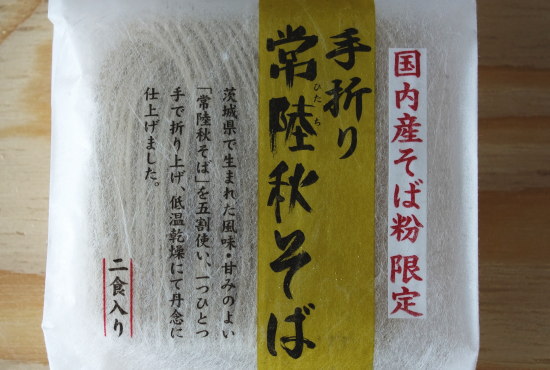 国内産そば粉限定
手折り
常陸秋そば
ひたち
茨城県で生まれた風味・甘みのよい
「常陸秋そば」を五割使い、一つひとつ
手で折り上げ、低温乾燥にて丹念に
仕上げました。
二食入り